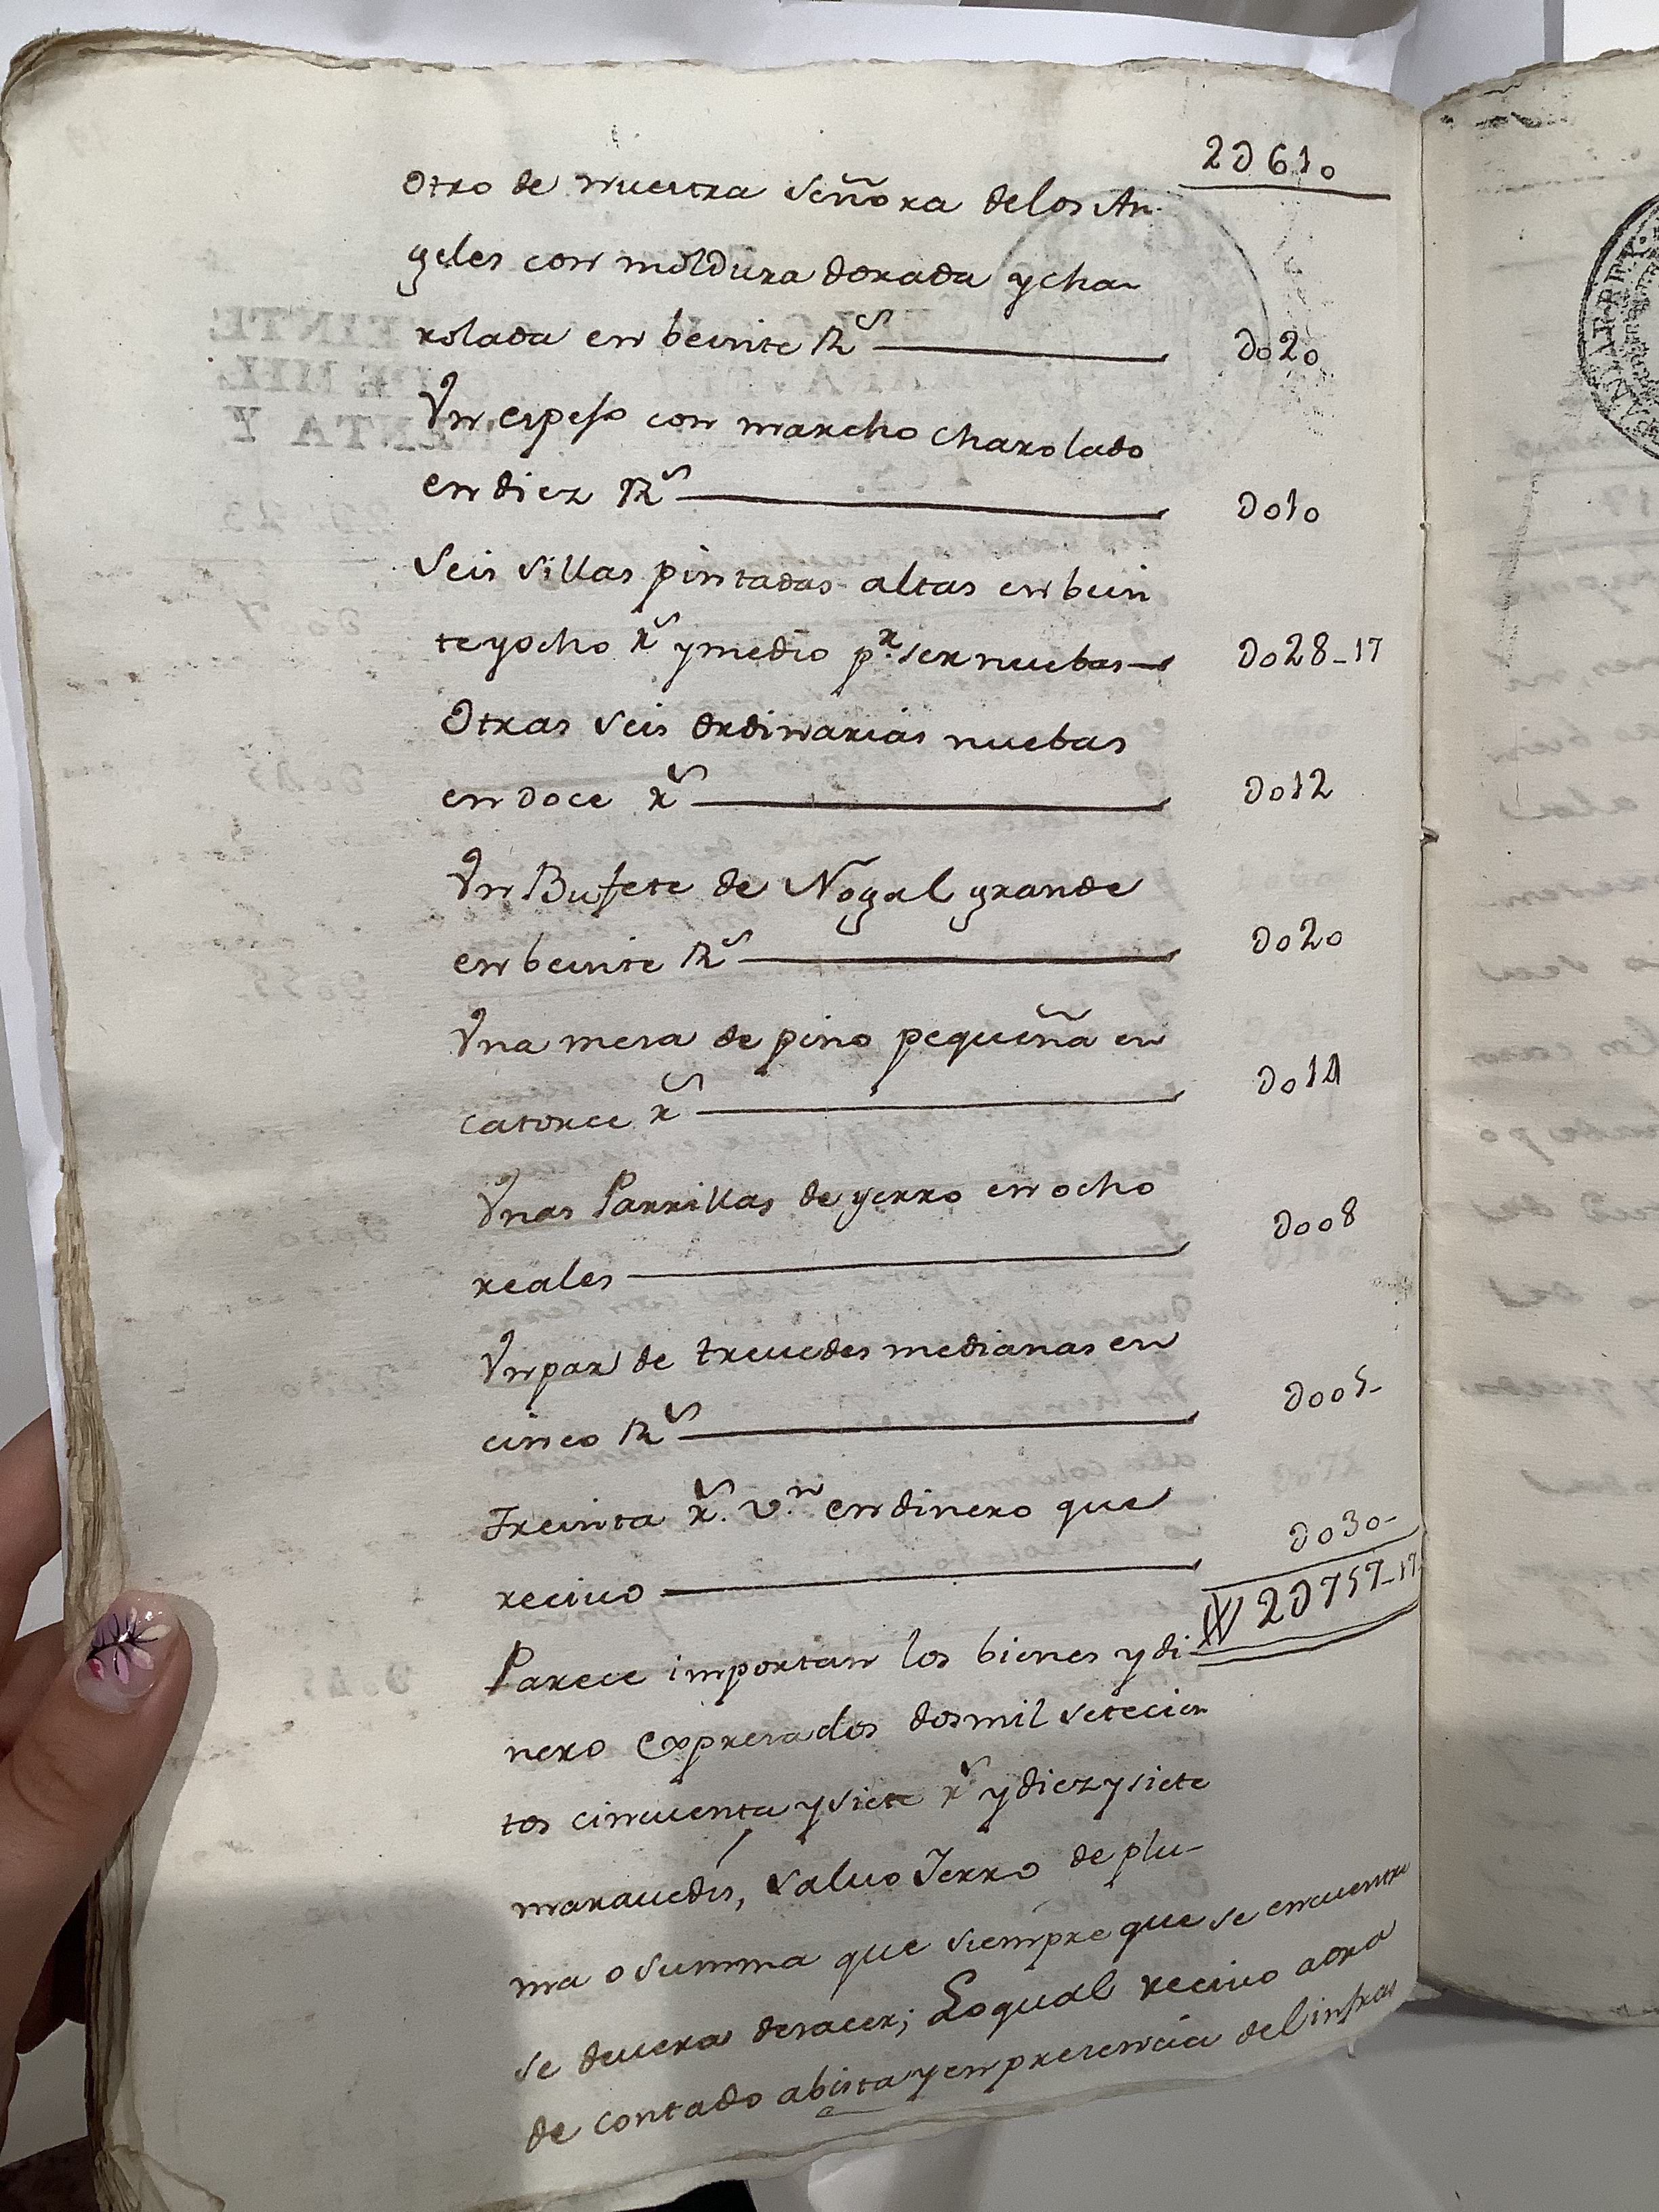 2D610
Otro de nuestra Señora delos An-
geles con moldura dorada y cha-
rolada en beinte Rs
Do20
Vn espejo con marcho charolado
en diez Rs
Do10
Seis sillas pintadas altas en bein
te y ocho rs y medio pr ser nuebas
Do28-17
Otras seis ordinarias nuebas
en doce rs
Do12
Vn Bufete de Nogal grande
en beinte Rs
Do20
Vna mesa de pino pequeña en
catorce rs
Do14
Vnas Parrillas de yerro en ocho
reales
Doo8
Vn par de treuedes medianas en
cinco Rs
Doo5-
Treinta rs. vn. en dinero que
reciuo
Do30-
2D757-17
Parece importan los bienes y di-
nero expresados dos mil setecien
tos cincuenta y siete rs y diez y siete
marauedis, saluo Yerro de plu-
ma o summa que siempre que se encuentre
se deuera desacer; Loqual reciuo aora
de contado abista y en presencia del infras